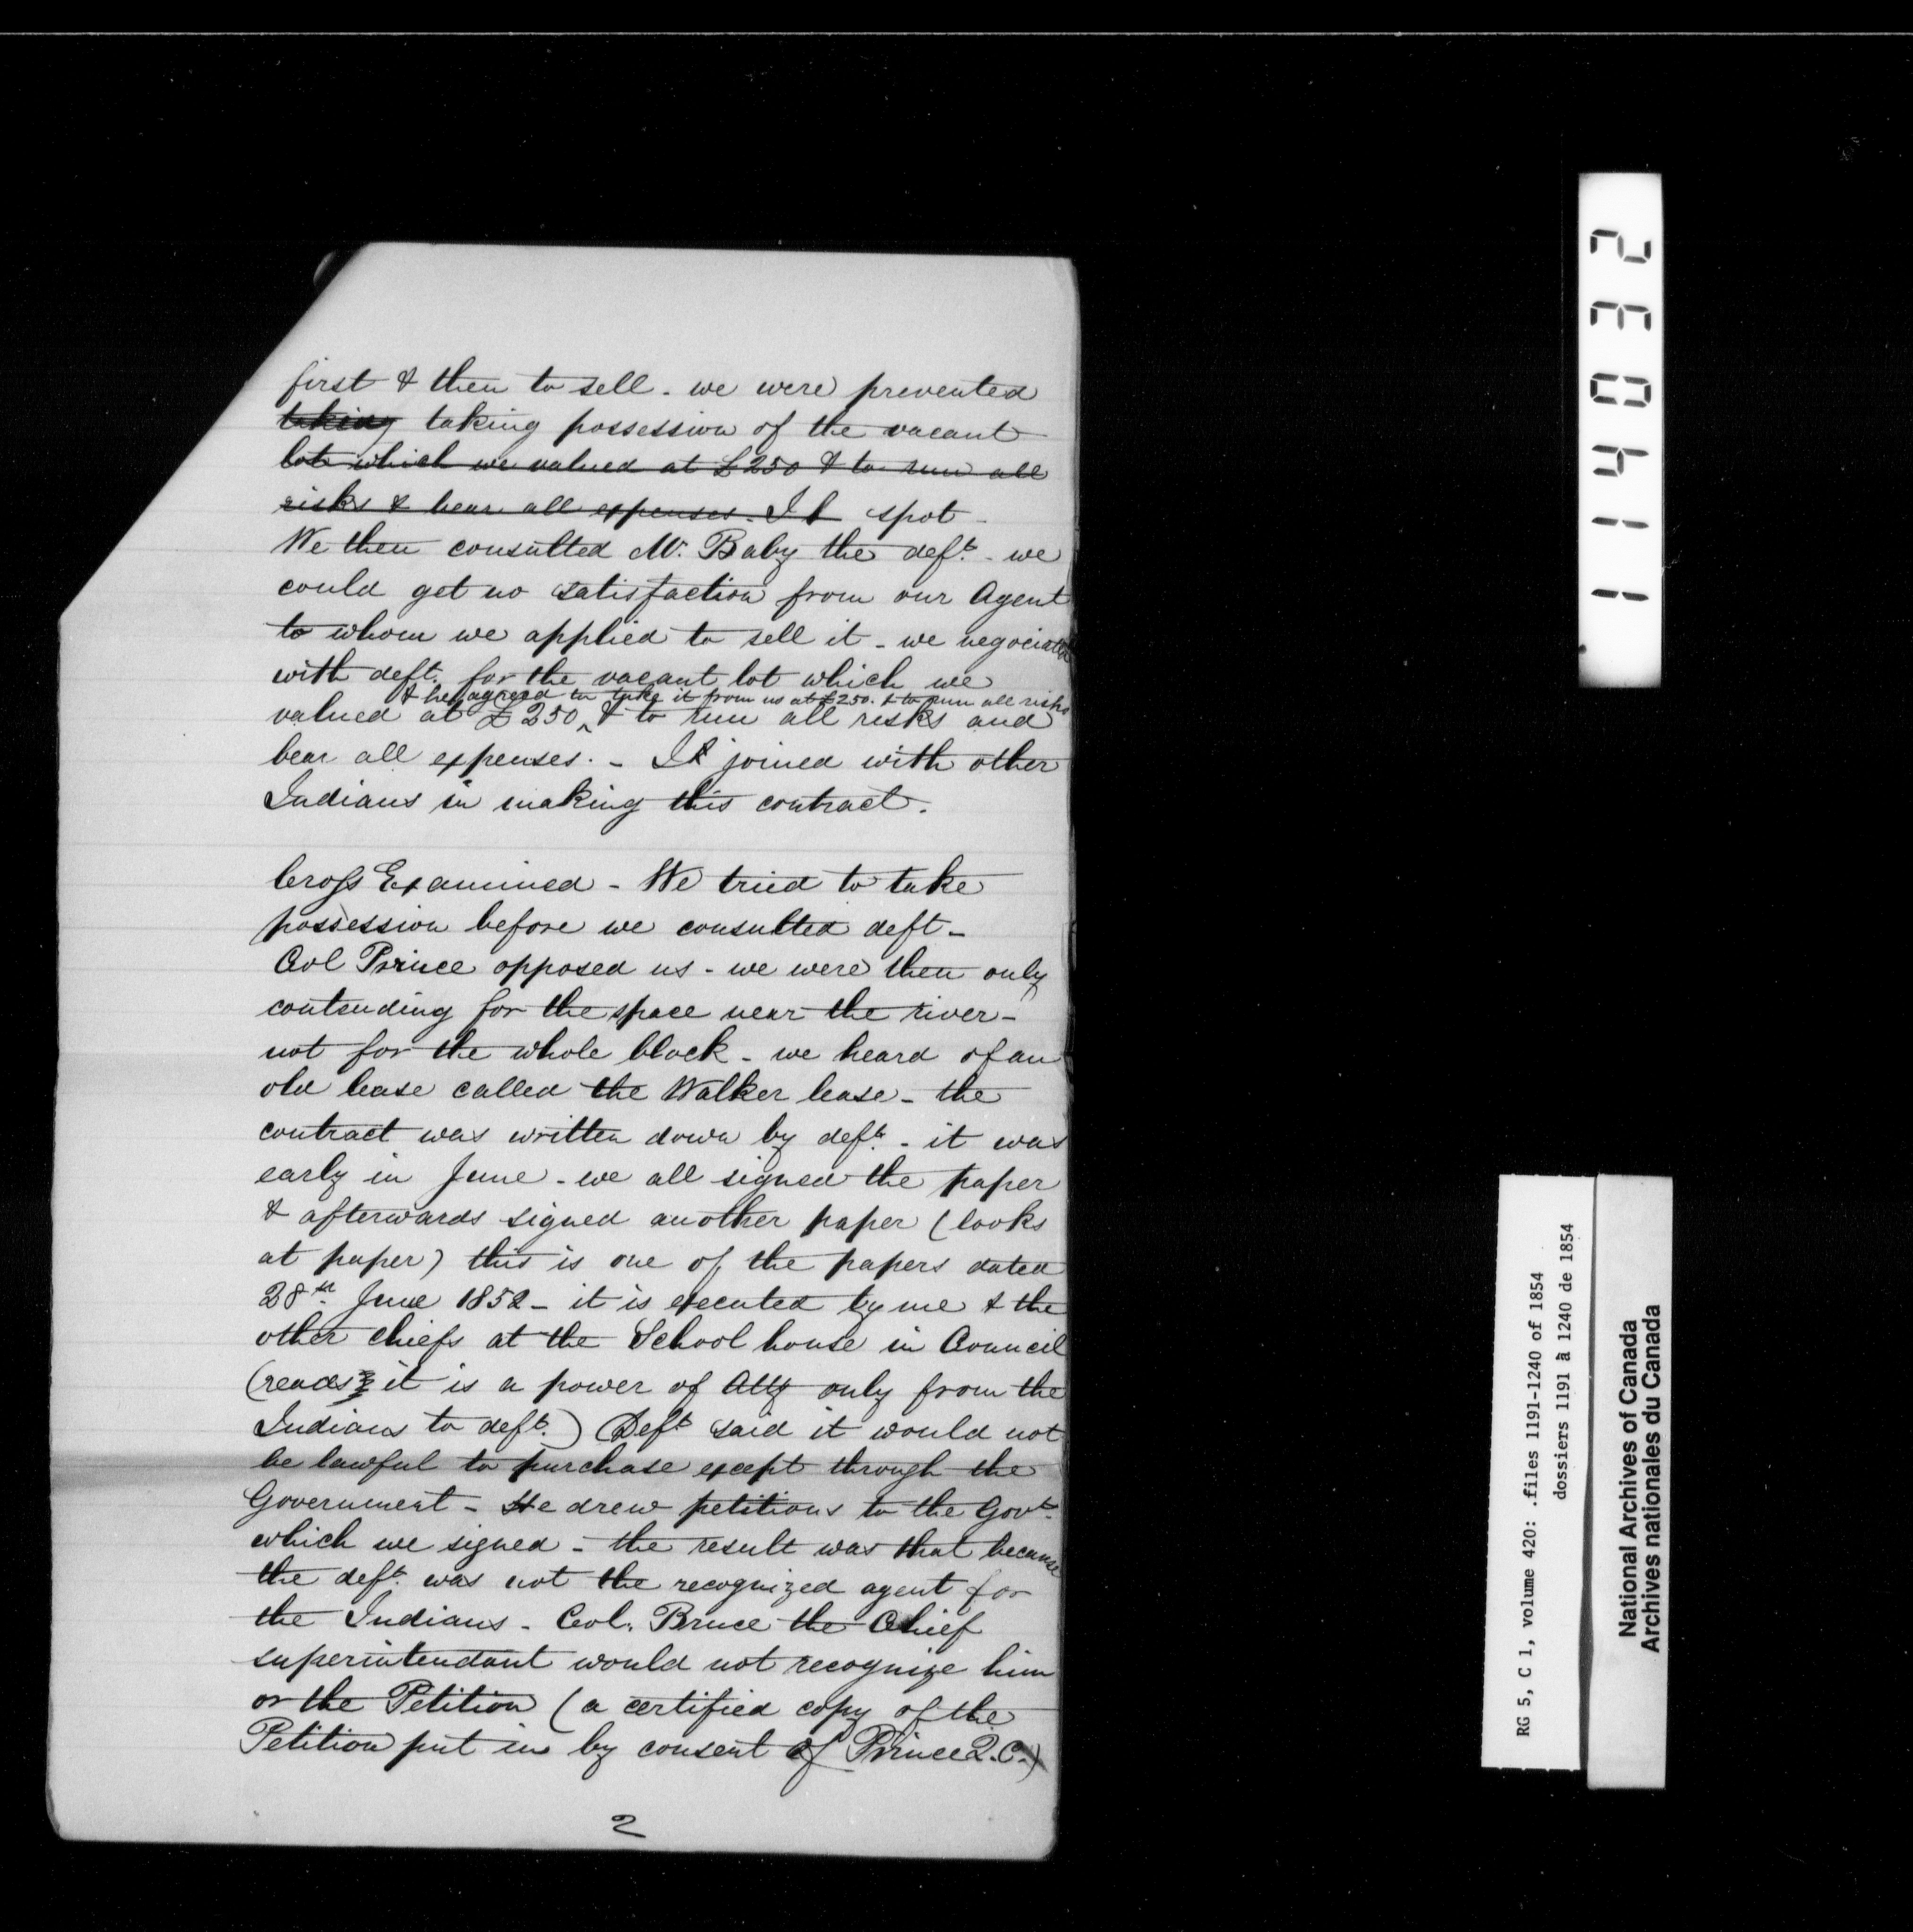 first & then to sell - we were prevented
taking taking possession of the vacant
lot which we valued at £250 & to run all
risks & bear all expenses. I spot -
We then consulted Mr. Baby the deft. - we
could get no satisfaction from our Agent
to whom we applied to sell it - we negociated
with deft. for the vacant lot which we
& he agreed to take it from us at £250. & to run all risks
valued at £250 ^ & to run all risks and
bear all expenses. - I joined with other
Indians in making this contract.
Cross Examined - We tried to take
possession before we consulted deft -
Col Prince opposed us - we were then only
contending for the space near the river -
not for the whole block - we heard of an
old lease called the Walker lease - the
contract was written down by deft. - it was
early in June - we all signed the paper
& afterwards signed another paper (looks
at paper) this is one of the papers dated
28th. June 1852 - it is executed by me & the
other chiefs at the School house in Council
(reads it is a power of Atty only from the
Indians to deft.) Deft said it would not
be lawful to purchase except through the
Government - He drew petitions to the Govt.
which we signed - the result was that because
the deft. was not the recognized agent for
the Indians - Col. Bruce the Chief
superintendant would not recognize him
or the Petition (a certified copy of the
Petition put in by consent of Prince Q.C.)
2
114032
RG 5, C 1, volume 420: .files 1191-1240 of 1854
dossiers 1191 à 1240 de 1854
National Archives of Canada
Archives nationales du Canada